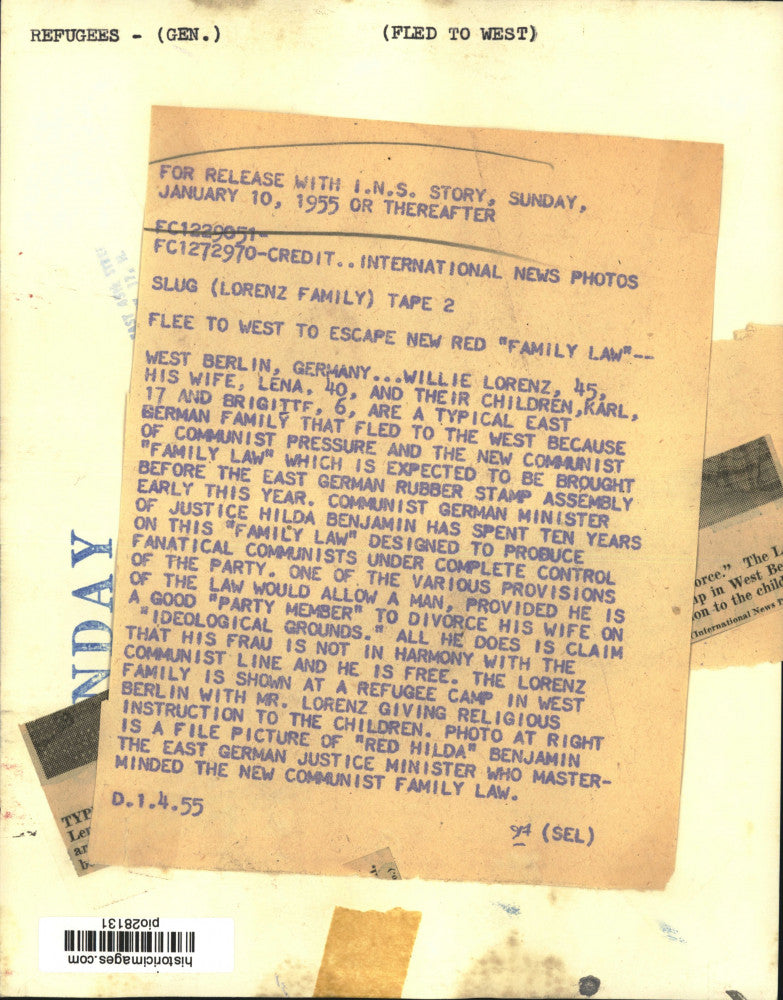 REFUGEES - (GEN.) (FLED TO WEST)
FOR RELEASE WITH I.N.S. STORY, SUNDAY,
JANUARY 10, 1955 OR THEREAFTER
FC1229051-
FC1272970-CREDIT..INTERNATIONAL NEWS PHOTOS
SLUG (LORENZ FAMILY) TAPE 2
FLEE TO WEST TO ESCAPE NEW RED "FAMILY LAW"--
WEST BERLIN, GERMANY...WILLIE LORENZ, 45,
HIS WIFE, LENA, 40, AND THEIR CHILDREN, KARL,
17 AND BRIGITTE, 6, ARE A TYPICAL EAST
GERMAN FAMILY THAT FLED TO THE WEST BECAUSE
OF COMMUNIST PRESSURE AND THE NEW COMMUNIST
"FAMILY LAW" WHICH IS EXPECTED TO BE BROUGHT
BEFORE THE EAST GERMAN RUBBER STAMP ASSEMBLY
EARLY THIS YEAR. COMMUNIST GERMAN MINISTER
OF JUSTICE HILDA BENJAMIN HAS SPENT TEN YEARS
ON THIS "FAMILY LAW" DESIGNED TO PRODUCE
FANATICAL COMMUNISTS UNDER COMPLETE CONTROL
OF THE PARTY. ONE OF THE VARIOUS PROVISIONS
OF THE LAW WOULD ALLOW A MAN, PROVIDED HE IS
A GOOD "PARTY MEMBER" TO DIVORCE HIS WIFE ON
"IDEOLOGICAL GROUNDS." ALL HE DOES IS CLAIM
THAT HIS FRAU IS NOT IN HARMONY WITH THE
COMMUNIST LINE AND HE IS FREE. THE LORENZ
FAMILY IS SHOWN AT A REFUGEE CAMP IN WEST
BERLIN WITH MR. LORENZ GIVING RELIGIOUS
INSTRUCTION TO THE CHILDREN. PHOTO AT RIGHT
IS A FILE PICTURE OF "RED HILDA" BENJAMIN
THE EAST GERMAN JUSTICE MINISTER WHO MASTER-
MINDED THE NEW COMMUNIST FAMILY LAW.
D.1.4.55
(SEL)
NDAY
orce." The L
p in West Be
on to the chil
(International News
TYP
Ler
ar
b
pio28131
historicimages.com